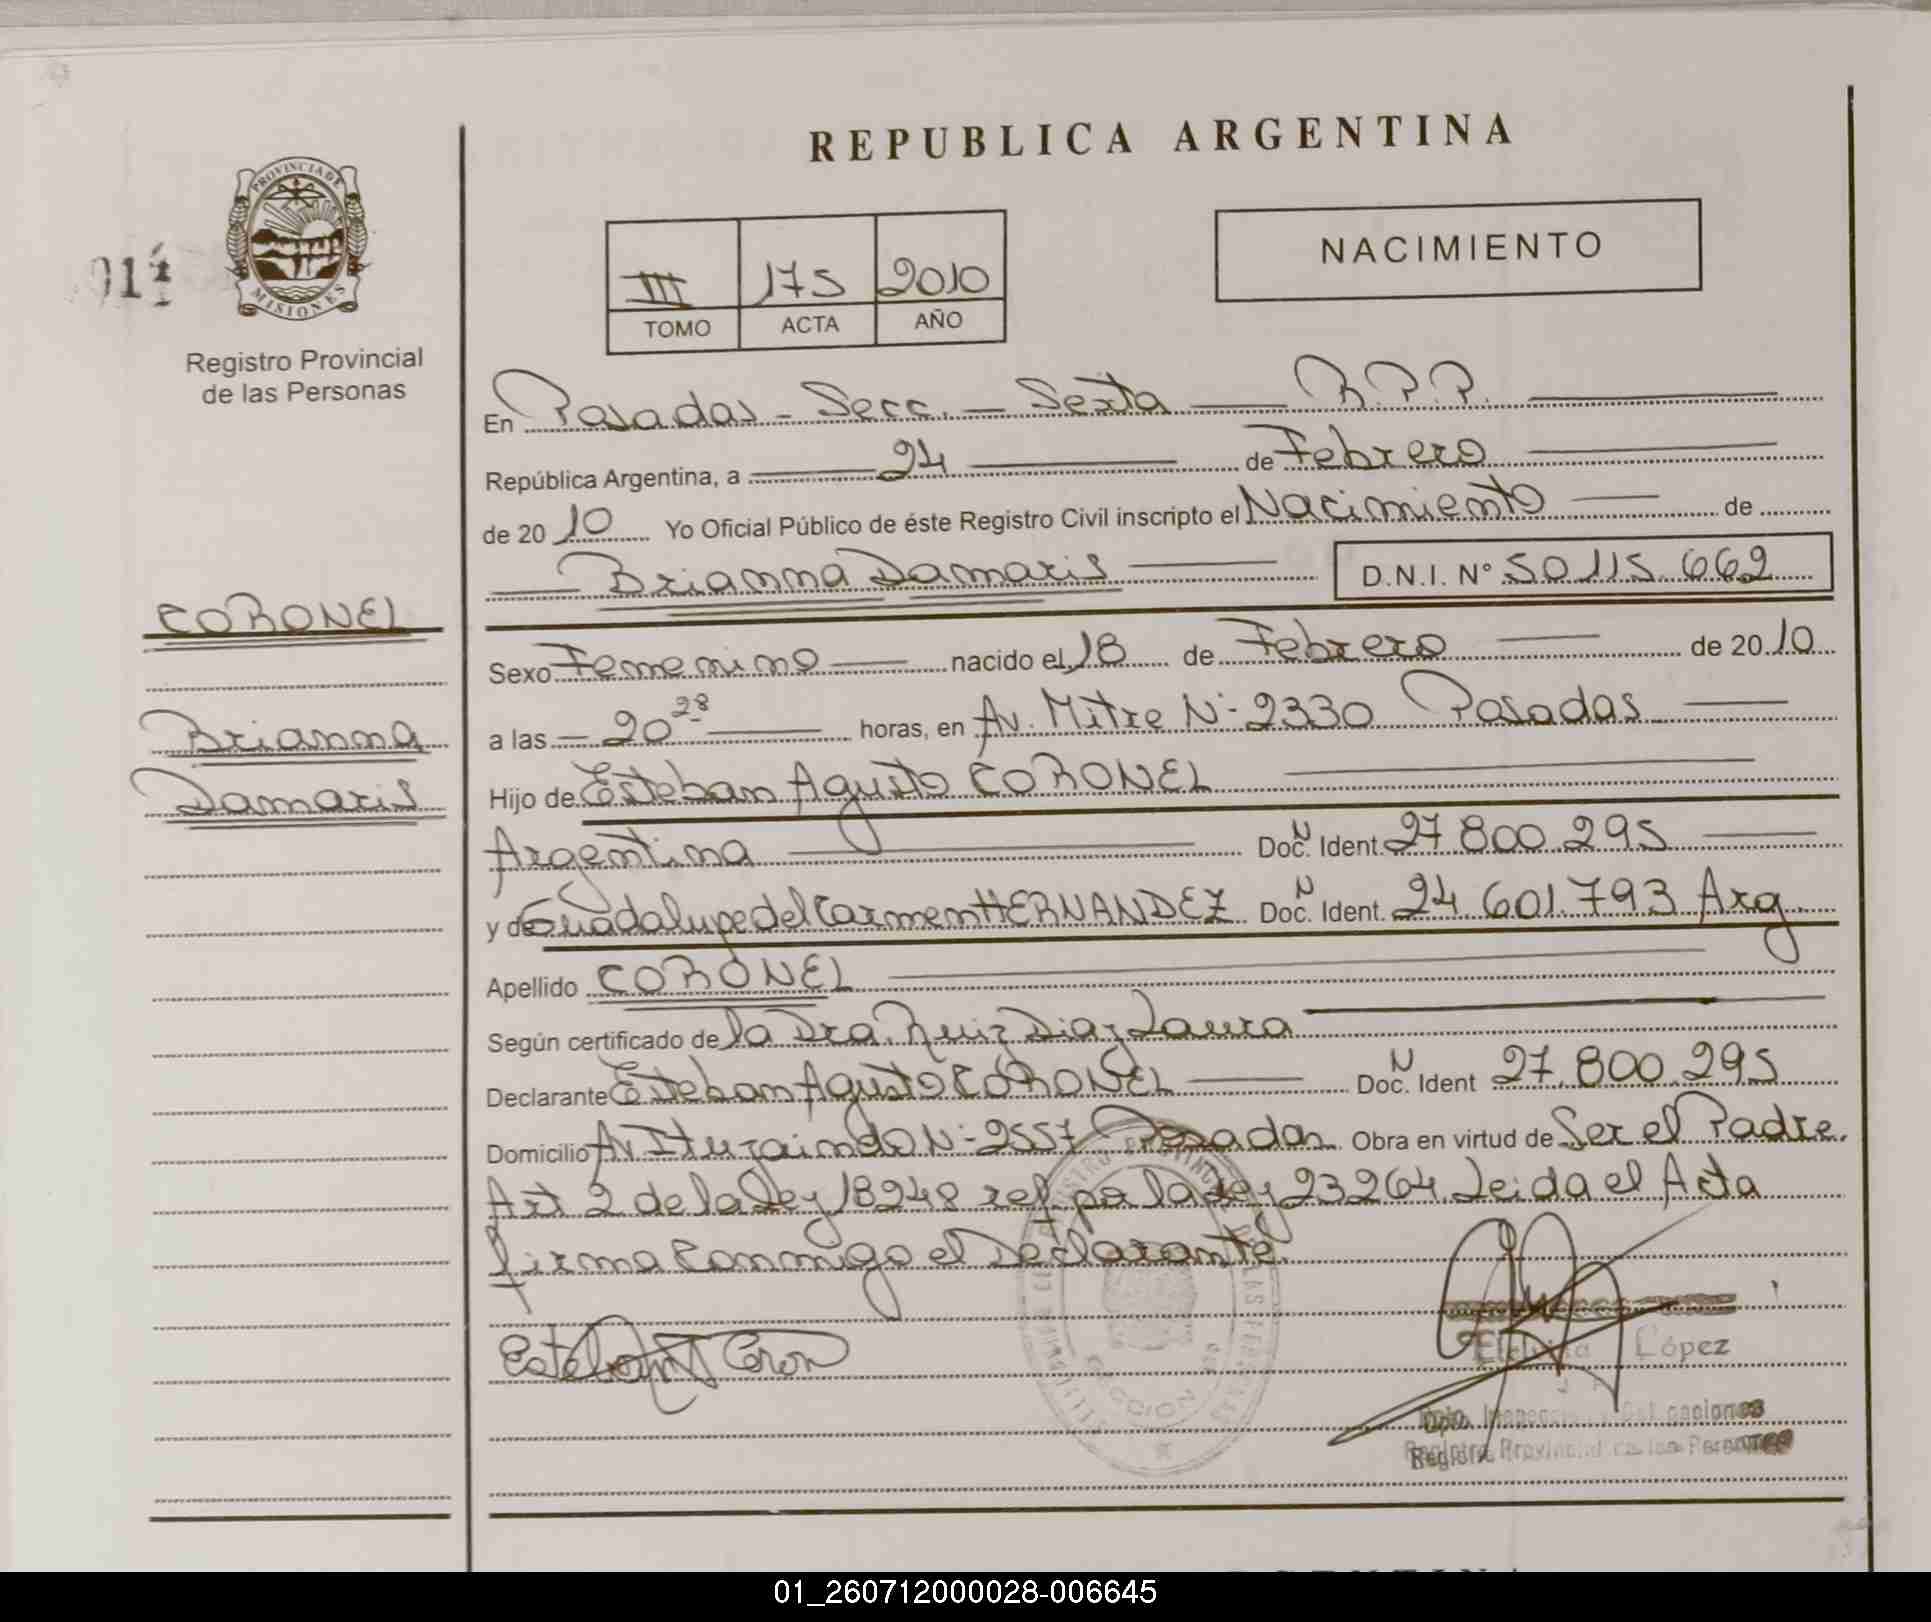 REPUBLICA ARGENTINA
PROVINCIA DE
MISIONES
Registro Provincial
de las Personas
III 175 2010
TOMO ACTA AÑO
NACIMIENTO
En Posadas - Secc. - Sexta — R.P.P.
República Argentina, a — 24 — de Febrero
de 20 10 Yo Oficial Público de éste Registro Civil inscripto el Nacimiento — de
— Brianna Damaris — D.N.I. Nº 50.115.662
CORONEL
Brianna
Damaris
Sexo Femenino — nacido el 18 de Febrero — de 20 10
a las — 20 28 — horas, en Av. Mitre Nº 2330 Posadas —
Hijo de Esteban Agusto CORONEL —
Argentina — Doc. N Ident. 27.800.295 —
y de Guadalupe del Carmen HERNANDEZ Doc. N Ident. 24.601.793 Arg.
Apellido CORONEL —
Según certificado de la Dra. Ruiz Diaz Laura —
Declarante Esteban Agusto CORONEL — Doc. N Ident 27.800.295
Domicilio Av Ituzaindo Nº 2557 Posadas Obra en virtud de Ser el Padre.
Art 2 de la Ley 18248 ref. por la Ley 23264. Leida el Acta
firma conmigo el Declarante.
López
Registro Provincial de las Personas
01_260712000028-006645